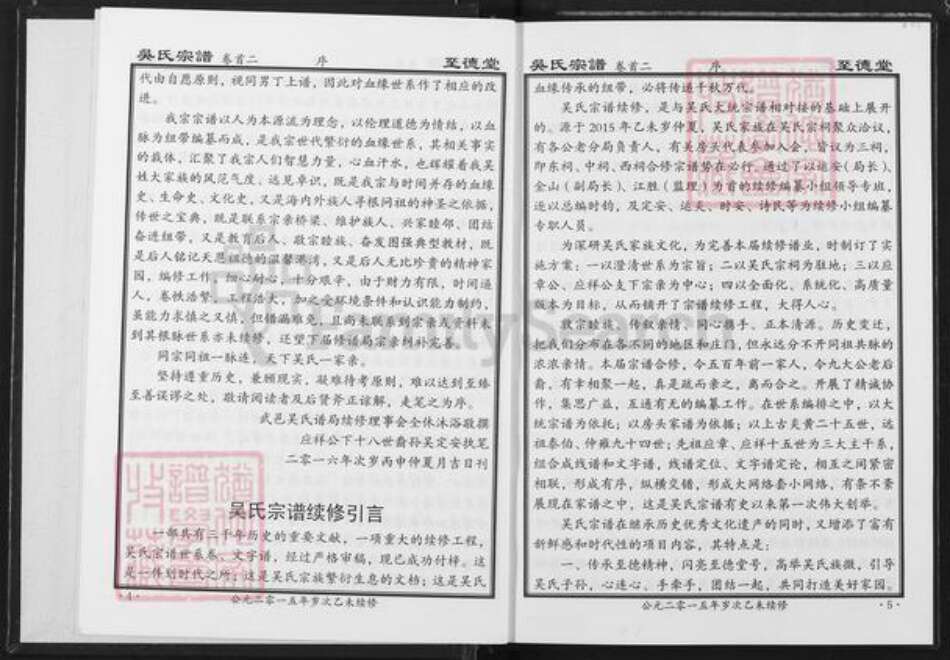 吳氏宗譜 卷首二 序 至德堂
代由自愿原则，视同男丁上谱，因此对血缘世系作了相应的改
进。
我宗宗谱以人为本源流为理念，以伦理道德为情结，以血
脉为纽带编纂而成，是我宗世代繁衍的血缘世系，其相关事实
的载体，汇聚了我宗人们智慧力量，心血汗水，也辉耀着我吴
姓大家族的风范气度、远见卓识，既是我宗与时间并存的血缘
史、生命史、文化史，又是海内外族人寻根问祖的神圣之依据，
传世之宝典，既是联系宗亲桥梁、维护族人、兴家睦邻、团结
奋进纽带，又是教育后人、敬宗睦族、奋发图强典型教材，既
是后人铭记天恩祖德的温馨港湾，又是后人无比珍贵的精神家
园，编修工作，细心耐心，十分艰辛，由于财力有限，时间逼
人，卷帙浩繁，工程浩大，加之受环境条件和认识能力制约，
虽能力求慎之又慎，但错漏难免，且尚未联系到宗亲或资料未
到其根脉世系亦未续修，还望下届修谱局宗亲纠补完善。
同宗同祖一脉连，天下吴氏一家亲。
坚持遵重历史，兼顾现实，疑难待考原则，难以达到至臻
至善误谬之处，敬请阅读者及后贤斧正谅解，走笔之为序。
武邑吴氏谱局续修理事会全休沐浴敬撰
应祥公下十八世裔孙吴定安执笔
二零一六年次岁丙申仲夏月吉日刊
吴氏宗谱续修引言
一部具有三千年历史的重要文献，一项重大的续修工程，
吴氏宗谱世系卷、文字谱，经过严格审稿，现已成功付梓。这
是一件划时代之所；这是吴氏宗族繁衍生息的文档；这是吴氏
·4·
公元二零一五年岁次乙未续修
吳氏宗譜 卷首二 序 至德堂
血缘传承的纽带，必将传递千秋万代。
吴氏宗谱续修，是与吴氏大统宗谱相对接的基础上展开
的。源于 2015 年乙未岁仲夏，吴氏家族在吴氏宗祠聚众洽议，
有各公老分局负责人，有关房头代表参加入会，皆议为三祠，
即东祠、中祠、西祠合修宗谱势在必行，通过了以德安(局长)、
金山(副局长)、江胜(监理)为首的续修编纂小组领导专班，
还以总编时钧，及定安、运天、时安、诗民等为续修小组编纂
专职人员。
为深研吴氏家族文化，为完善本届续修谱业，时制订了实
施方案：一以澄清世系为宗旨；二以吴氏宗祠为驻地；三以应
章公、应祥公支下宗亲为中心；四以全面化、系统化、高质量
版本为目标，从而铺开了宗谱续修工程，大得人心。
敬宗睦族、传叙亲情、同心携手、正本清源。历史变迁，
把我们分布在各不同的地区和庄门，但永远分不开同祖共脉的
浓浓亲情。本届宗谱合修，令五百年前一家人，令九大公老后
裔，有幸相聚一起，真是疏而亲之，离而合之。开展了精诚协
作，集思广益，互通有无的编纂工作。在世系编排之中，以大
统宗谱为依托；以房头家谱为依据；以上古炎黄二十五世，远
祖泰伯、仲雍九十四世；先祖应章、应祥十五世为三大主干系，
组合成线谱和文字谱，线谱定位、文字谱定论，相互之间紧密
相联，形成有序，纵横交错，形成大网络套小网络，有条不紊
展现在家谱之中，这是吴氏宗谱有史以来第一次伟大创举。
吴氏宗谱在继承历史优秀文化遗产的同时，又增添了富有
新鲜感和时代性的项目内容，其特点是：
一、传承至德精神，闪亮至德堂号，高举吴氏族徽，引导
吴氏子孙，心连心、手牵手，团结一起，共同打造美好家园。
公元二零一五年岁次乙未续修
·5·
FamilySearch